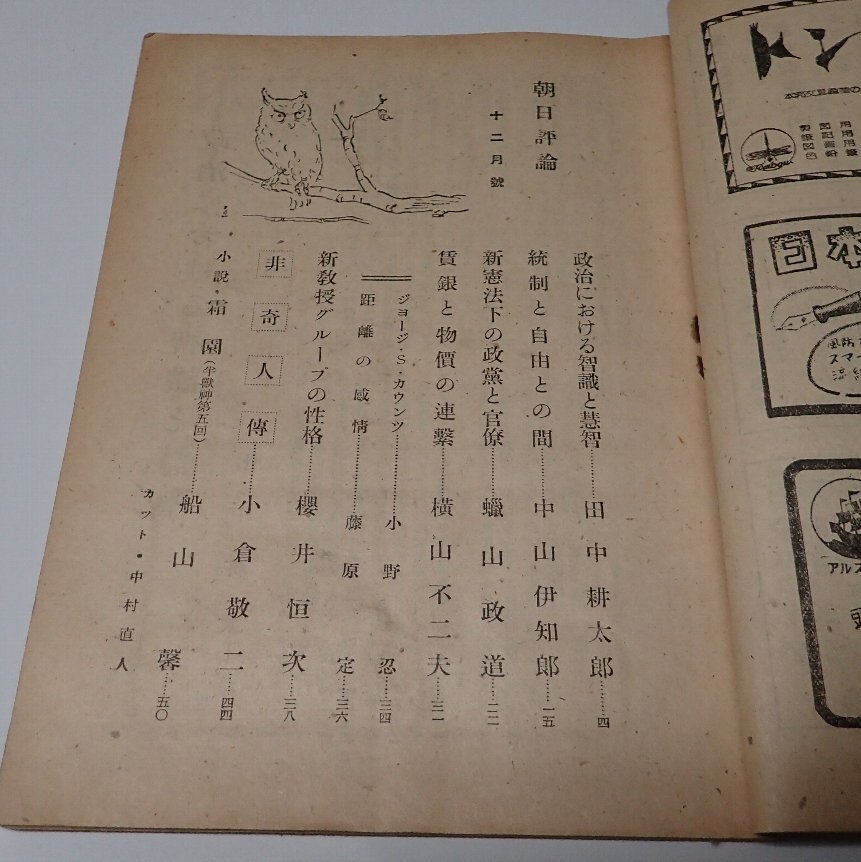 朝日評論
十二月號
政治における智識と慧智……田中耕太郎……四
統制と自由との間……中山伊知郎……一五
新憲法下の政黨と官僚……蠟山政道……二二
賃銀と物價の連繫……横山不二夫……三一
ジョージ・S・カウンツ……小野忍……三四
距離の感情……藤原定……三六
新敎授グループの性格……櫻井恒次……三八
非奇人傳……小倉敬二……四四
小説・霜園(半獸神第五回)……船山馨……五〇
カット・中村直人
日本
アルス